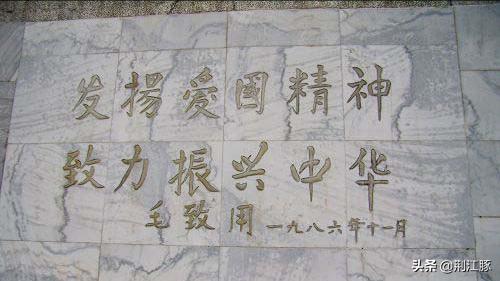 发揚愛國精神
致力振兴中华
毛致用 一九八六年十一月
头条 @荆江豚